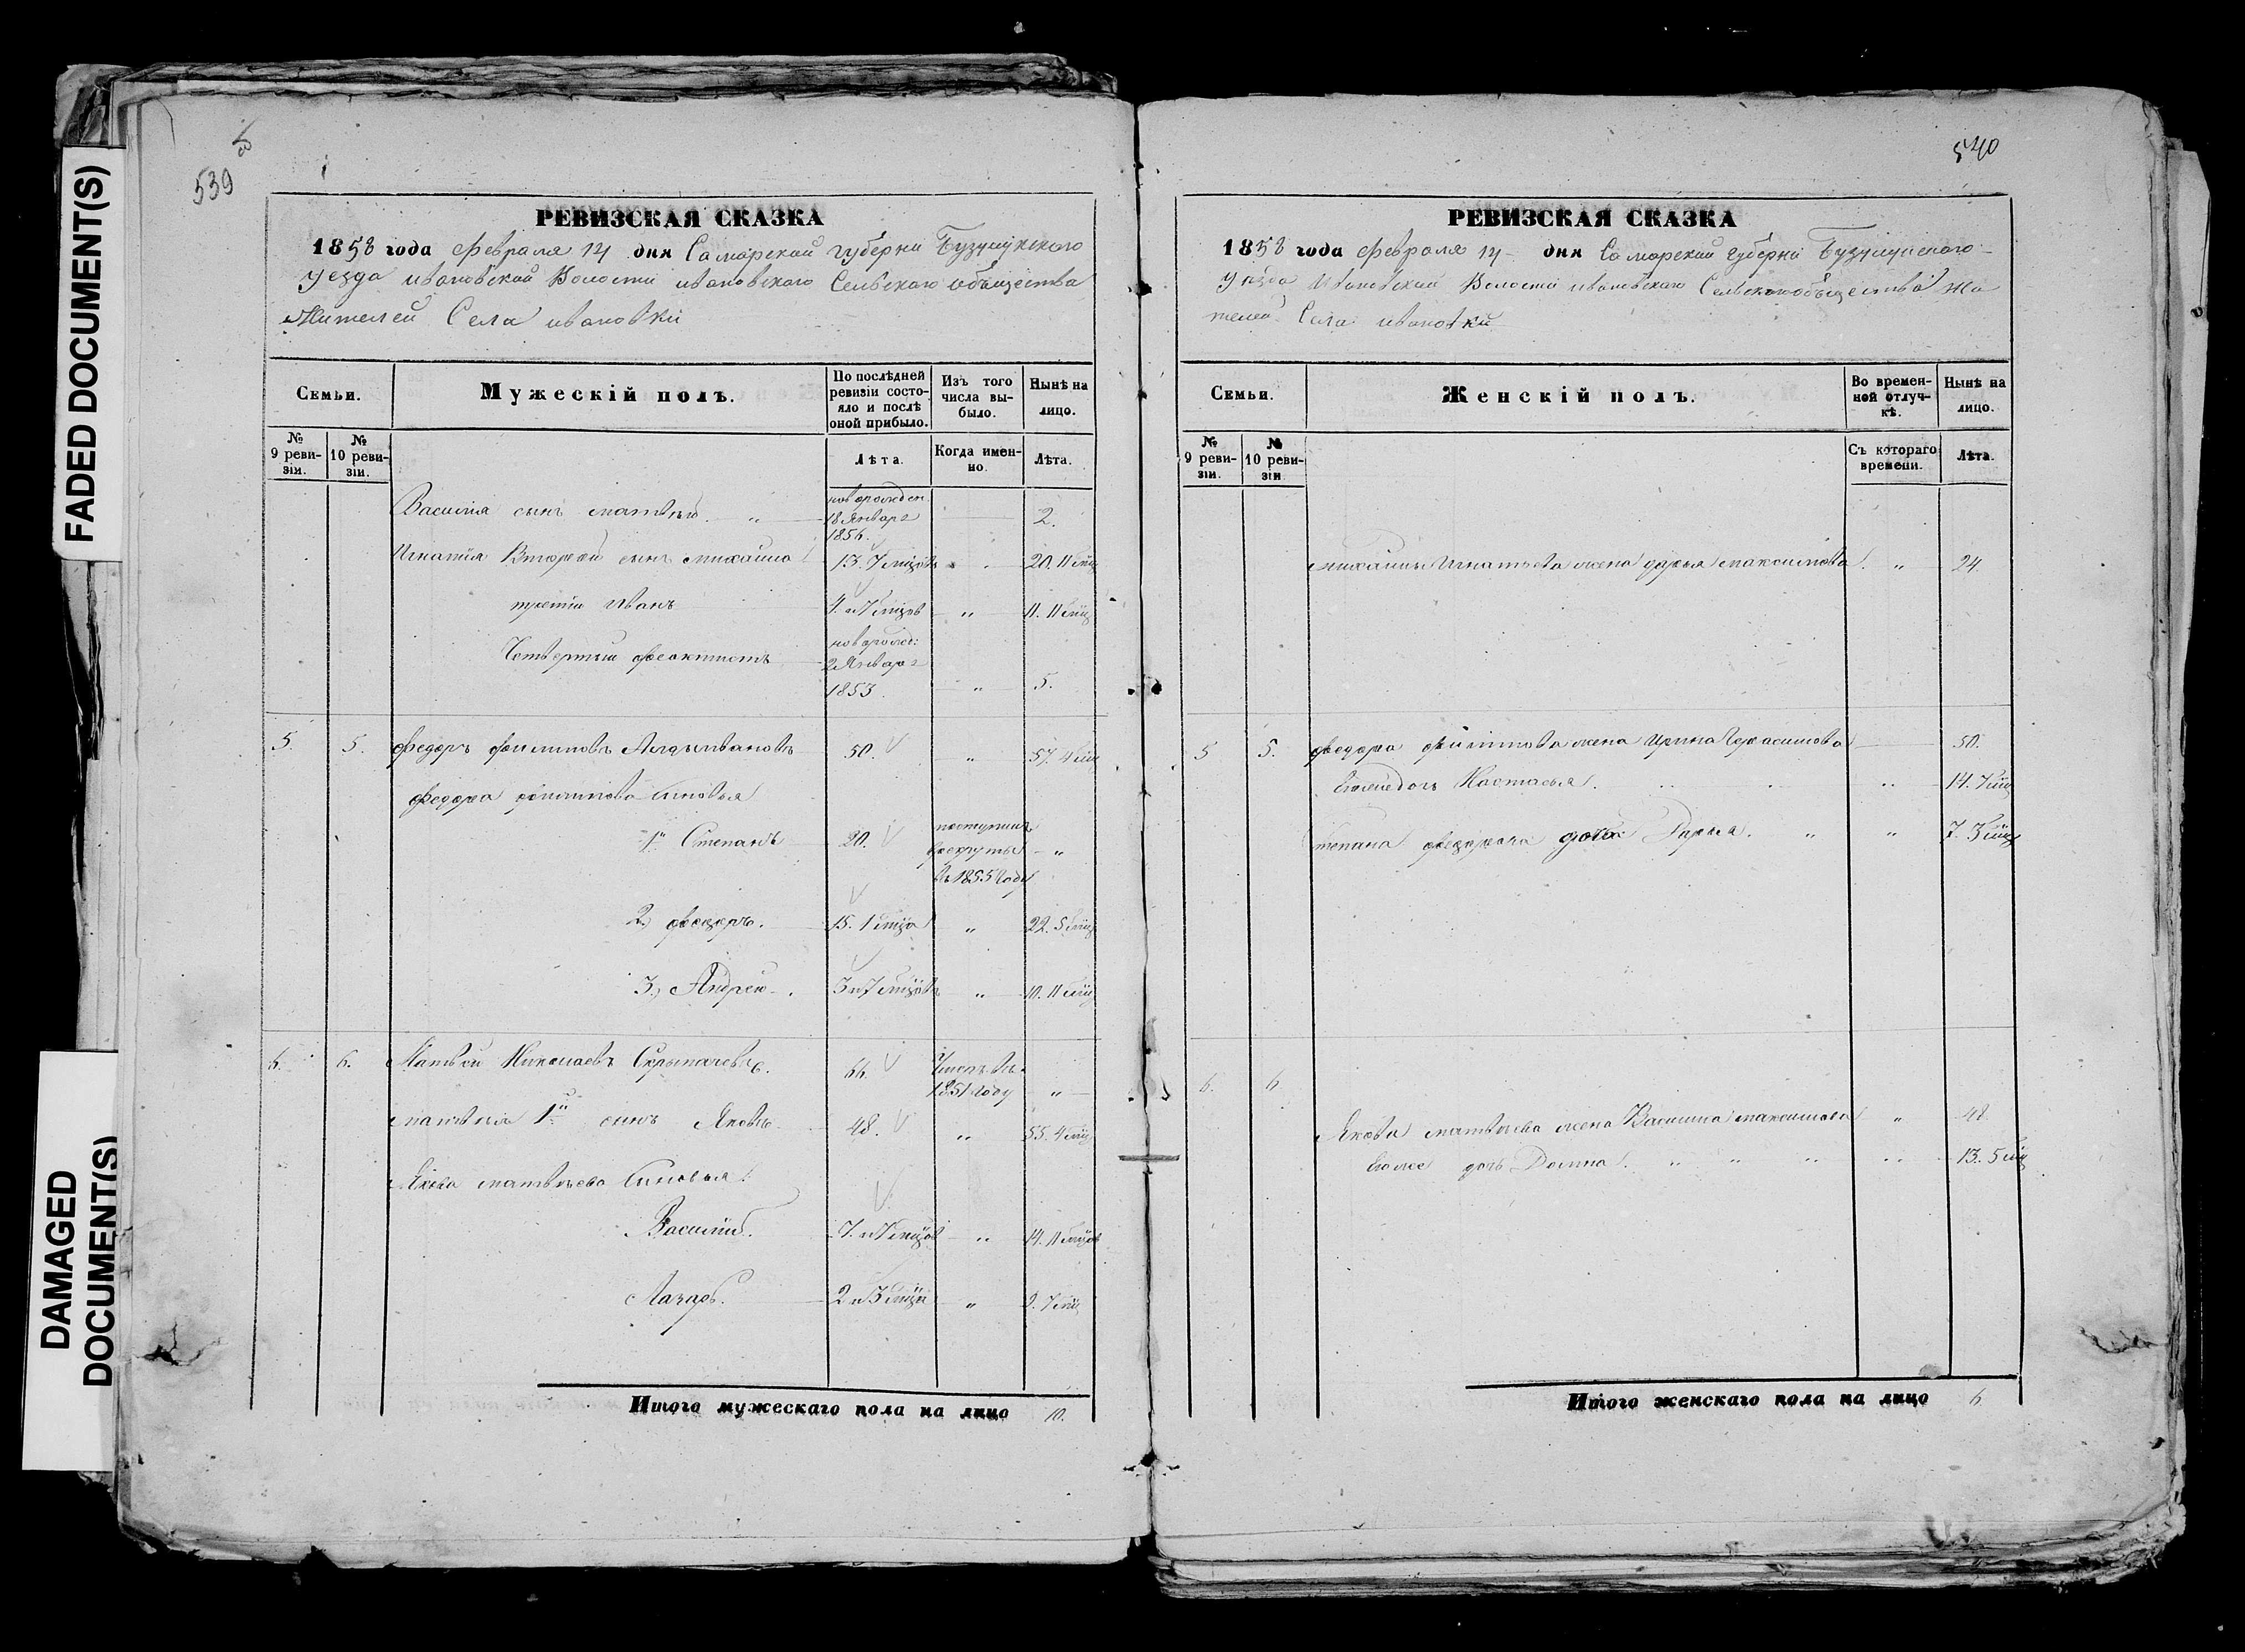 FADED DOCUMENT(S)
DAMAGED
DOCUMENT(S)
539
РЕВИЗСКАЯ СКАЗКА
1858 года февраля 14 дня Самарской губерни Бузулукского
уезда ивановской Волости ивановского Сельского общества
Жителей Села ивановки
Семьи.
Мужескій полъ.
По послѣдней
ревизіи состо-
яло и послѣ
оной прибыло.
Изъ того
числа вы-
было.
Нынѣ на
лицо.
№
9 реви-
зіи.
№
10 реви-
зіи.
Лѣта.
Когда имен-
но.
Лѣта.
новорожден.
Василія сынъ матвѣй 18 Января 2.
1856.
Игнатія Второй сынъ михаило 13. 7 мцовъ 20. 11 мц
третій Иванъ 4. и 7 мцов " 11. 11 мц
новорожд:
Четвертый феоктистъ 2 Января
1853. " 5.
5. 5. федоръ филиповъ 50. " 57. 4 мц
федора филипова сыновья
1й Степанъ 20. поступилъ
в рекруты "
въ 1855 году
2) федоръ. 15. 1 мца " 22. 5 мц
3) Андрей. 3 и 7 мцовъ " 10. 11 мц
6. 6. Матвей Николаевъ 66. Умеръ въ
1851 году "
матвѣя 1й сынъ Яковъ 48. " 55. 4 мц
Якова матвѣева сыновья:
Василій. 7. и 7 мцов " 14. 11 мцов
Лазарь. 2 и 3 мца " 9. 7 мц
Итого мужескаго пола на лицо 10.
540
РЕВИЗСКАЯ СКАЗКА
1858 года февраля 14 дня Самарской губерни Бузулукского
уезда Ивановской Волости ивановского Сельского общества жи
телей Села ивановки
Семьи.
Женскій полъ.
Во времен-
ной отлуч-
кѣ.
Нынѣ на
лицо.
№
9 реви-
зіи.
№
10 реви-
зіи
Съ котораго
времени.
Лѣта.
михаила Игнатьева жена дарья максимова. " 24.
5 5. федора филипова жена Ирина Герасимова 50.
его же дочь Настасья. " 14. 7 мц
Степана федорова дочь Дарья. " " 7. 3 мц
6. 6
Якова матвѣева жена Василиса максимова " 48.
его же дочь Домна. " " " " 13. 5 мц
Итого женскаго пола на лицо 6